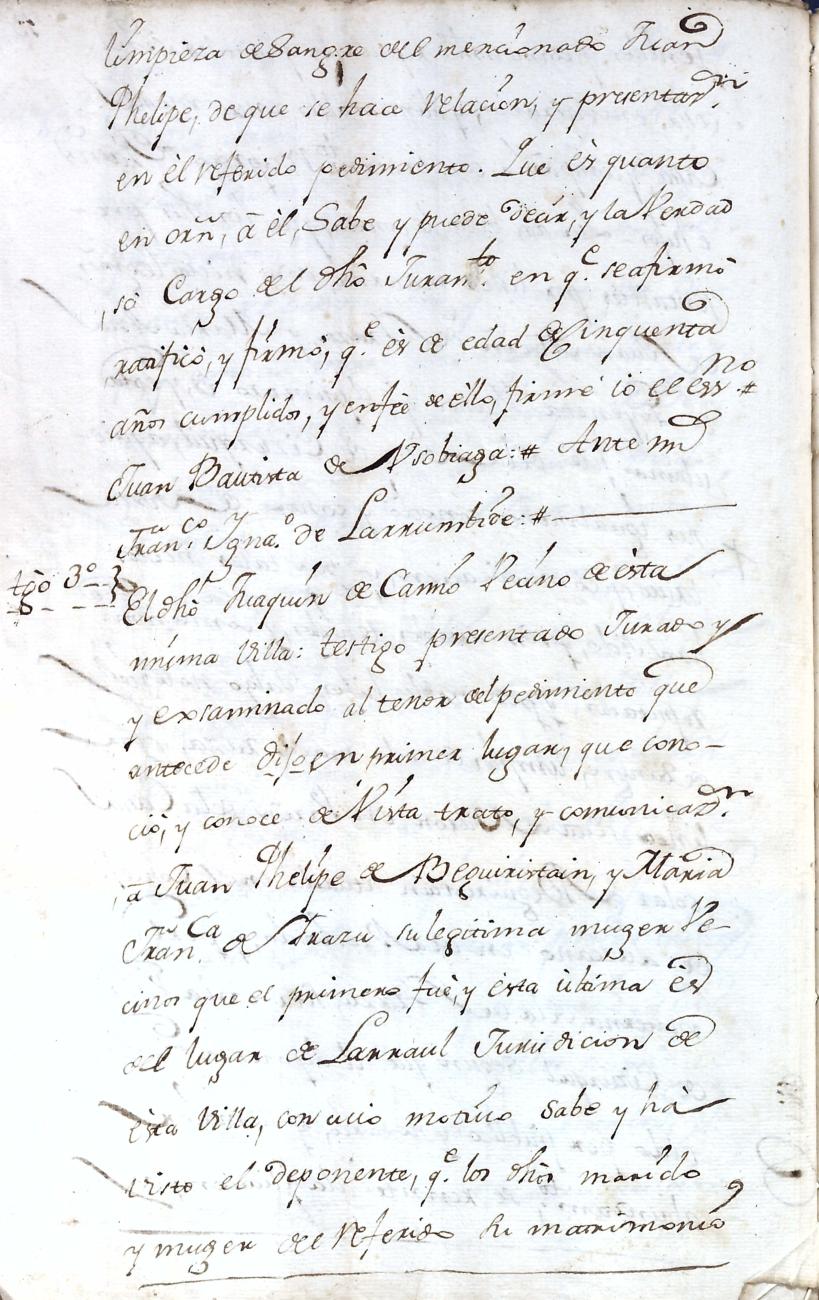 limpieza de Sangre del mencionado Juan
Phelipe, de que se hace relación, y presentaz.on
en èl referido pedimiento. Que ès quanto
en orñ, à èl, Sabe y puede decir, y la Verdad
sò Cargo del dhô Juram.to en q.e se afirmò
ratificò, y firmò, q.e ès de edad de Cinquenta
años cumplidos, y enfèe de èllo, firmè iò el ess.no #
Juan Bautista de Usobiaga: # Ante mi
Fran.co Ygna.o de Larrumbide: #
tgò 3º
El dhô Juaquin de Cam̃o Vecino de èsta
misma Villa: testigo presentado Jurado y
y exsaminado al tenor del pedimiento que
antecede dijo en primer lugar, que cono-
ciò, y conoce de Vista trato, y comunicaz.on
à Juan Phelipe de Beguiristain, y Maria
Fran.ca de Yrazu su legitima muger Ve-
cinos que el primero fuè, y èsta ùltima ès
del lugar de Larraul Jurisdicion de
èsta Villa, con cuio motivo Sabe y hà
visto el deponente, q.e los dhôs marido
y muger del referido su matrimonio